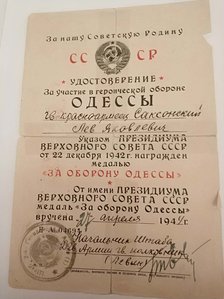 За нашу Советскую Родину
СС СР
УДОСТОВЕРЕНИЕ
За участие в героической обороне
ОДЕССЫ
гв. красноармеец Саксонский
Лев Яковлевич
Указом ПРЕЗИДИУМА
ВЕРХОВНОГО СОВЕТА СССР
от 22 декабря 1942 г. награжден
медалью
«ЗА ОБОРОНУ ОДЕССЫ»
От имени ПРЕЗИДИУМА
ВЕРХОВНОГО СОВЕТА СССР
медаль «За оборону Одессы»
вручена апреля 194
Начальник Штаба
Армии гв. полковник